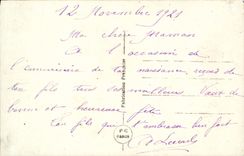 12 Novembre 1921
Ma chère Maman
A l'occasion de
l'anniversaire de ta naissance reçois de
ton fils tous ses meilleurs vœux de
bonne et heureuse fête
Ton fils qui t'embrasse bien fort
Fabrication Française
PARIS